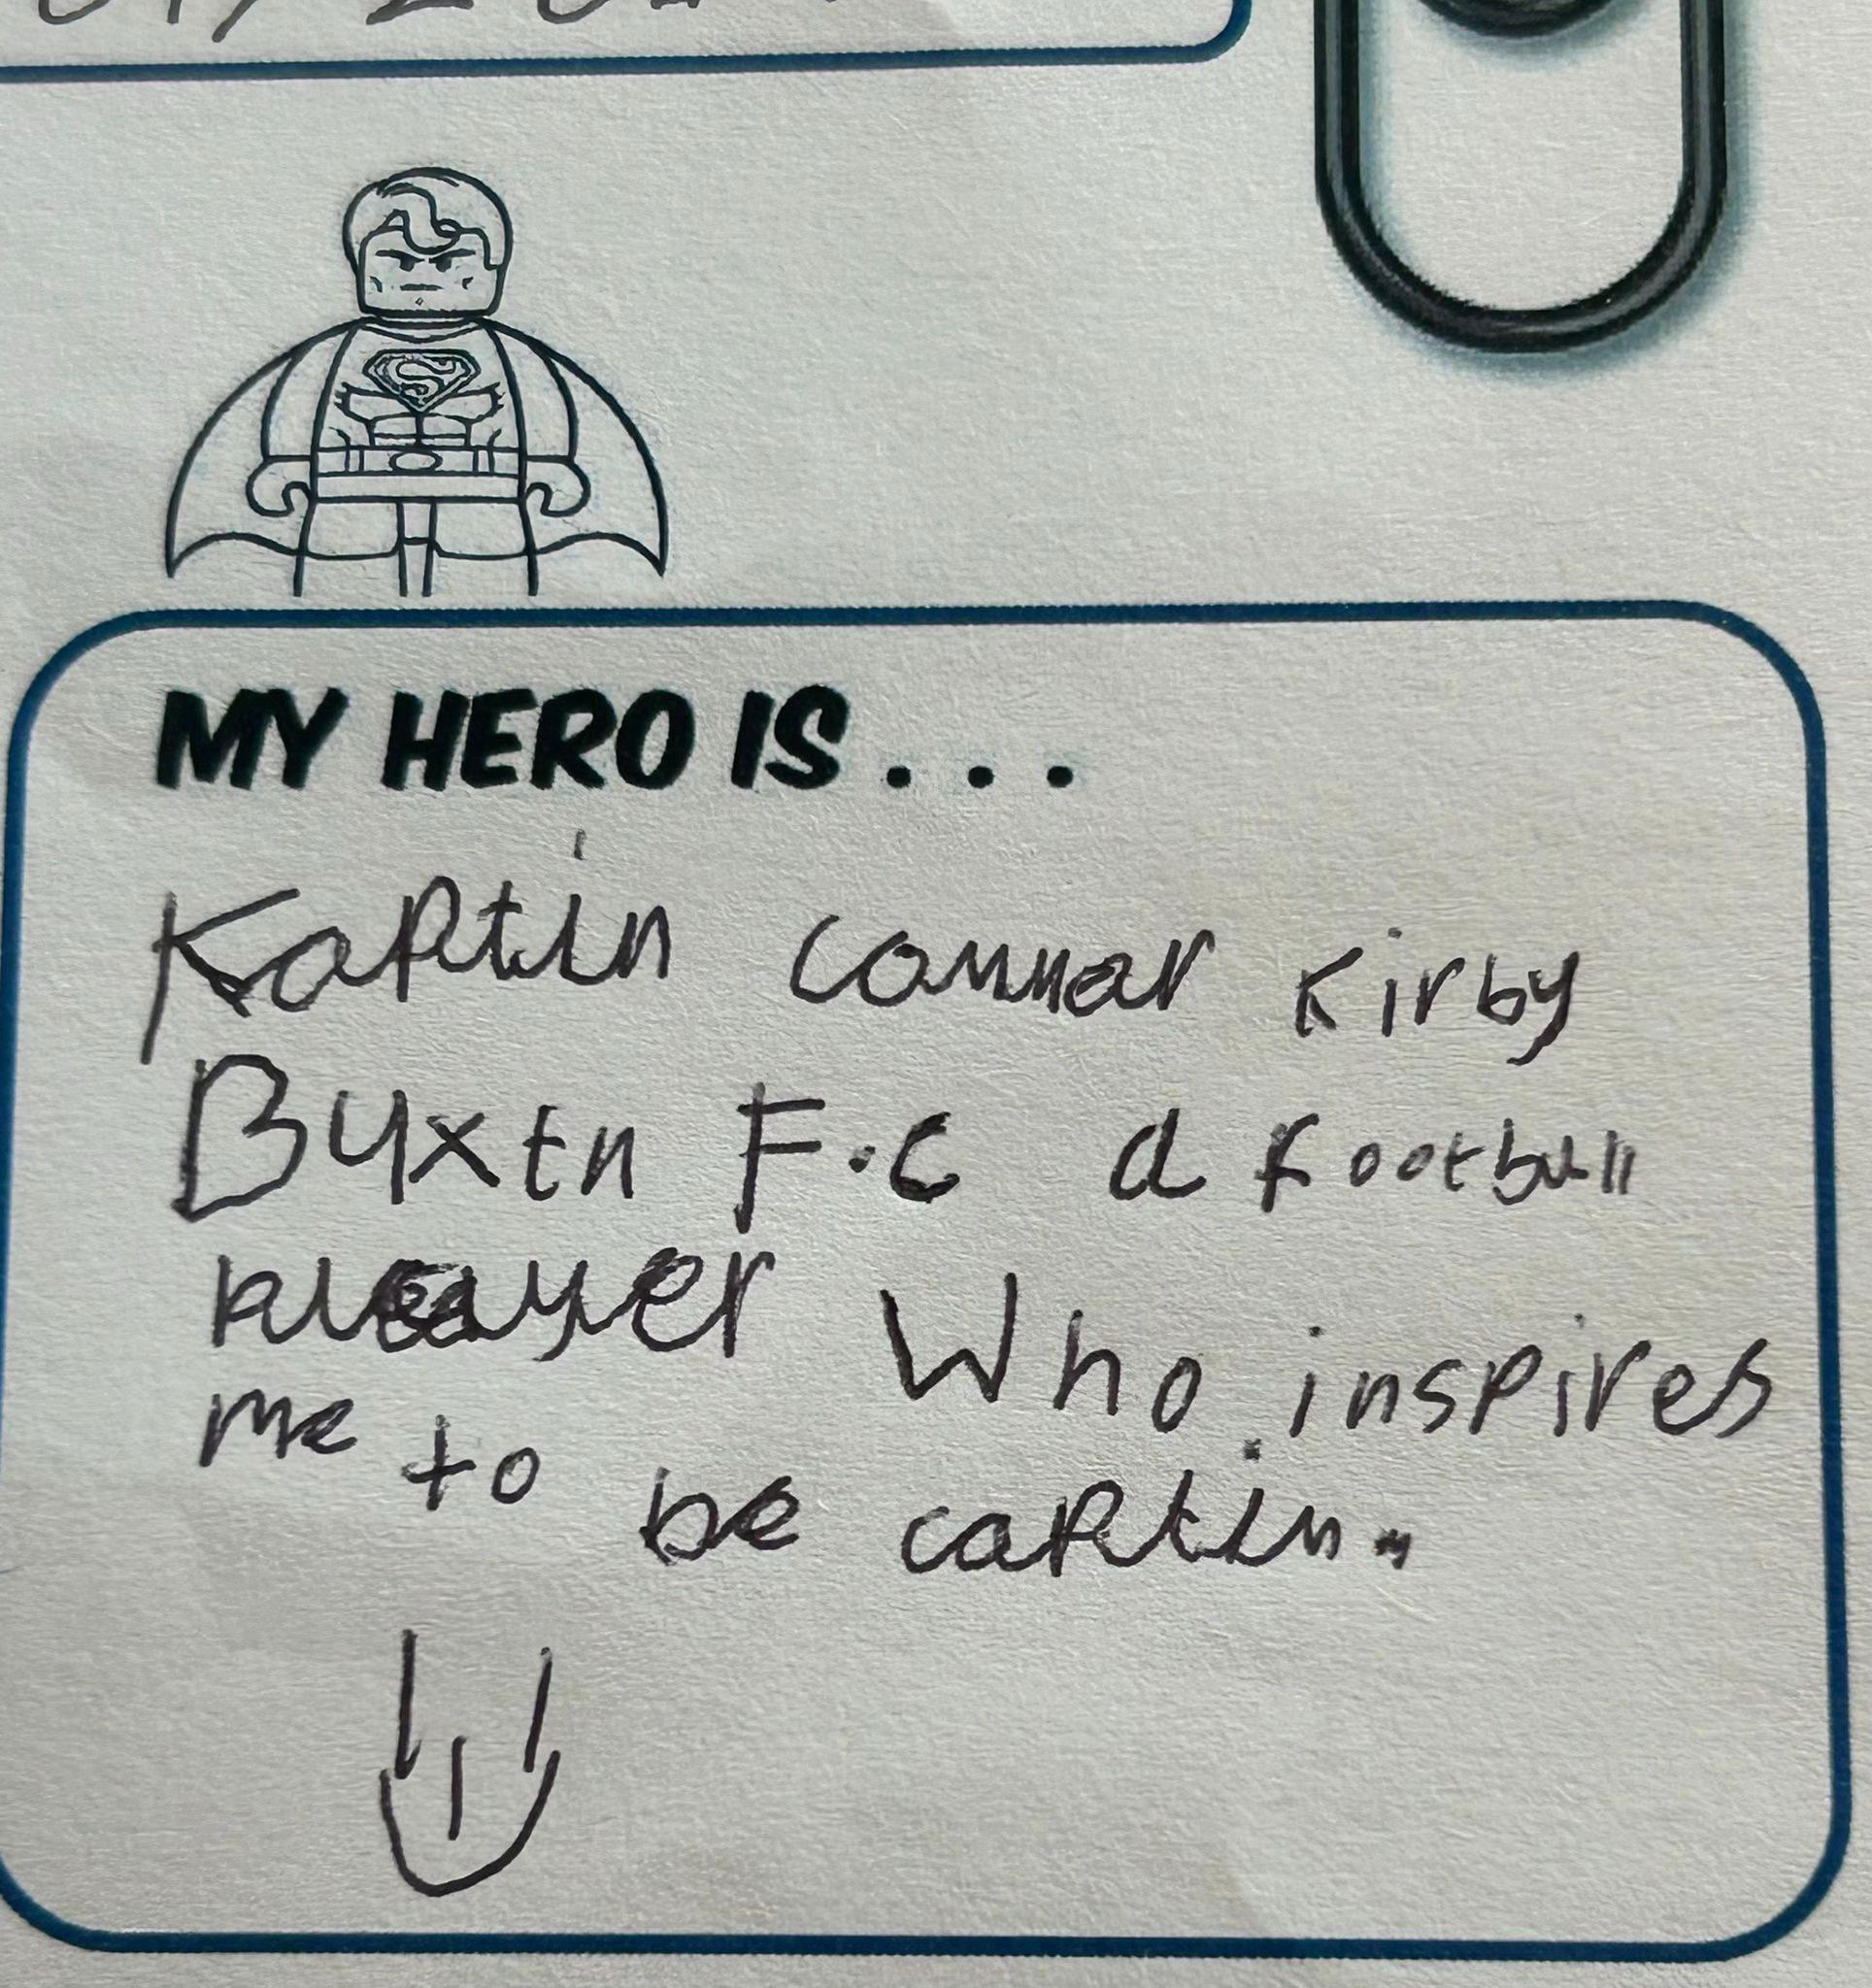 MY HERO IS...
Kaptin connor kirby
Buxtn F.C a football
player Who inspires
me to be captin.